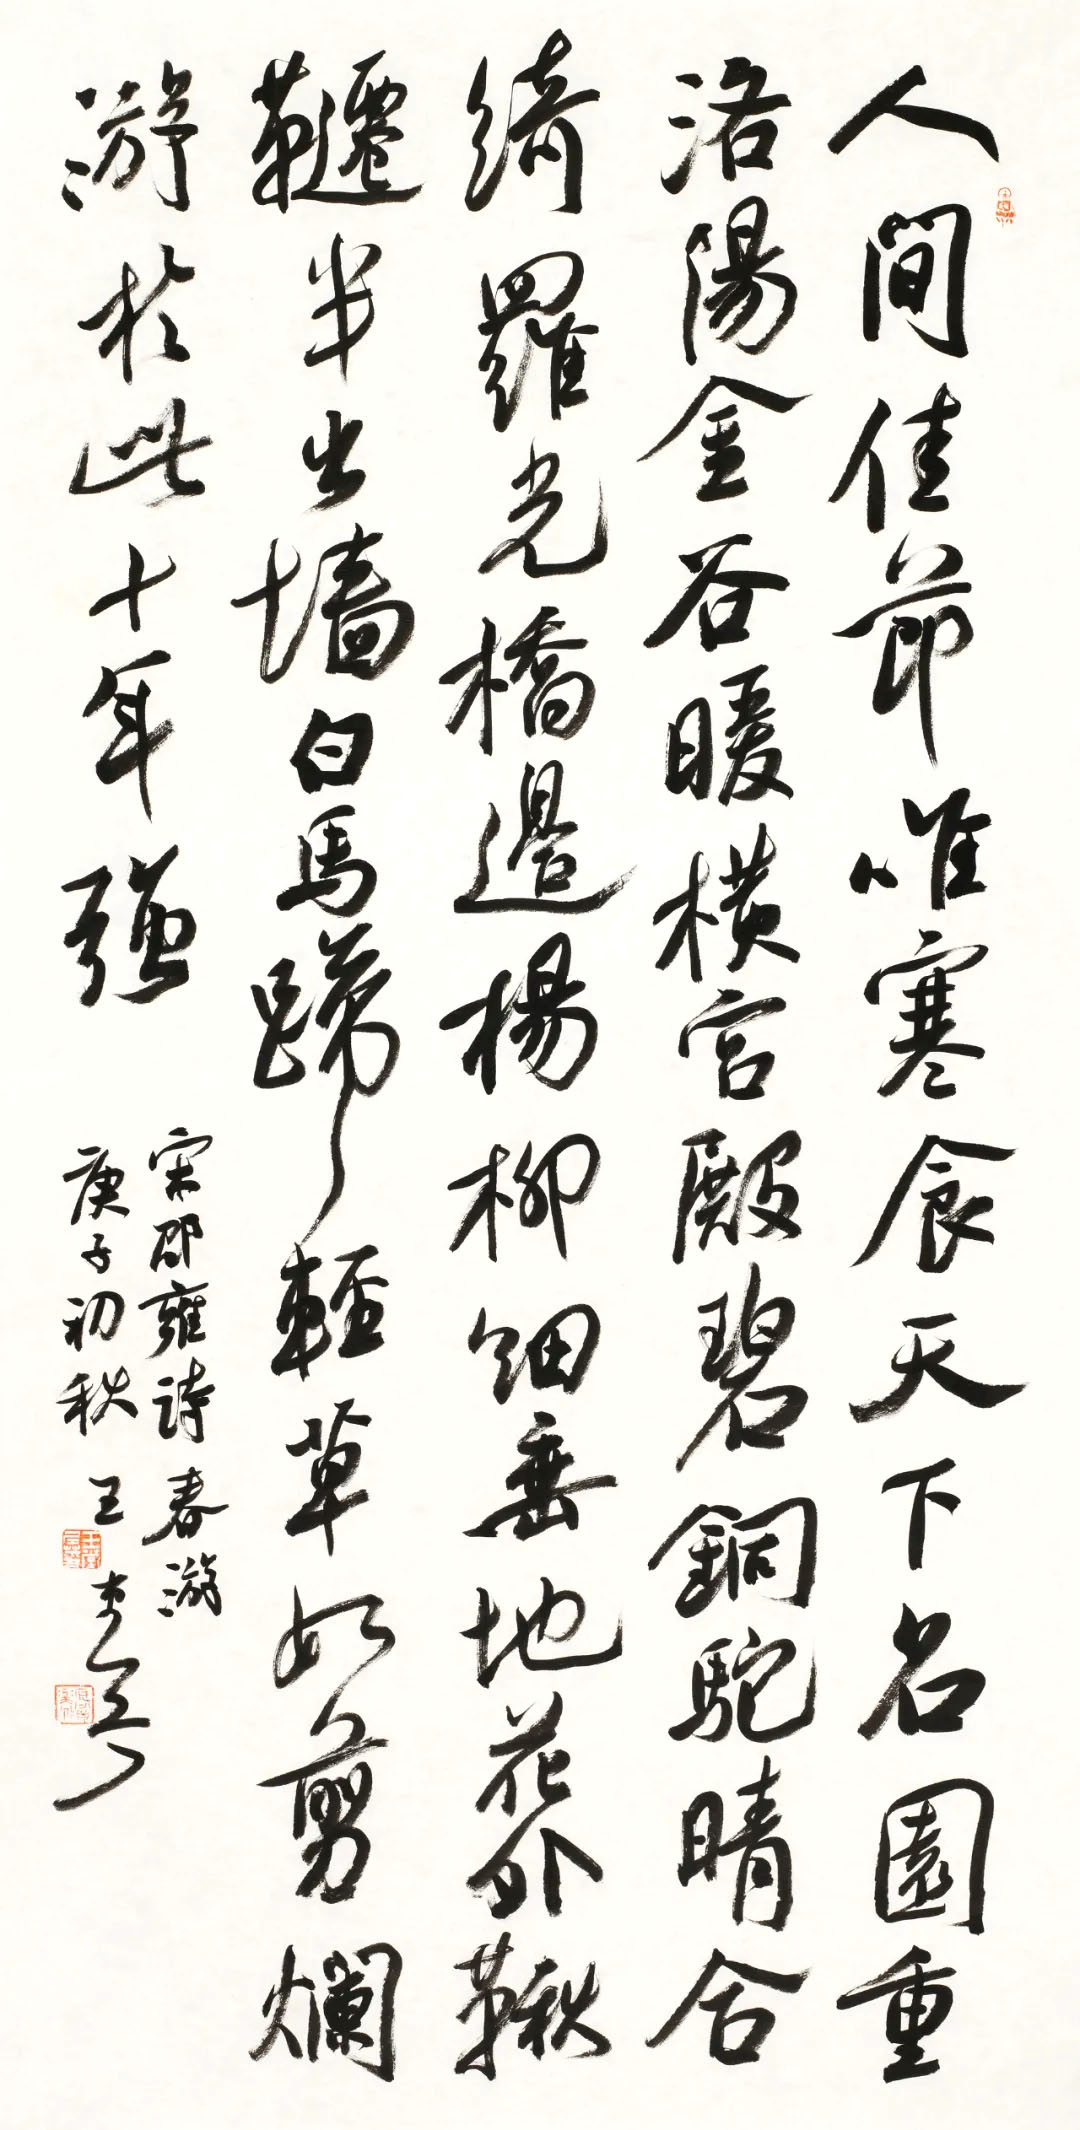 人間佳節唯寒食天下名園重
洛陽金谷暖橫宮殿碧銅駝晴合
綺羅光橋邊楊柳細垂地花外鞦
韆半出墻白馬蹄輕草如剪爛
游於此十年強
宋邵雍詩春游
庚子初秋王